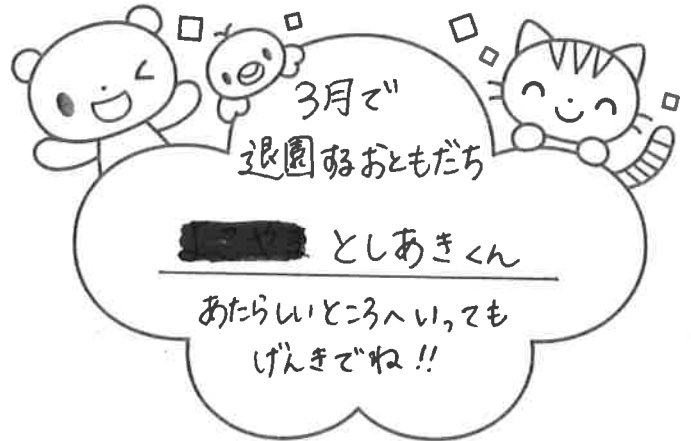 3月で
退園するおともだち
としあきくん
あたらしいところへいっても
げんきでね!!